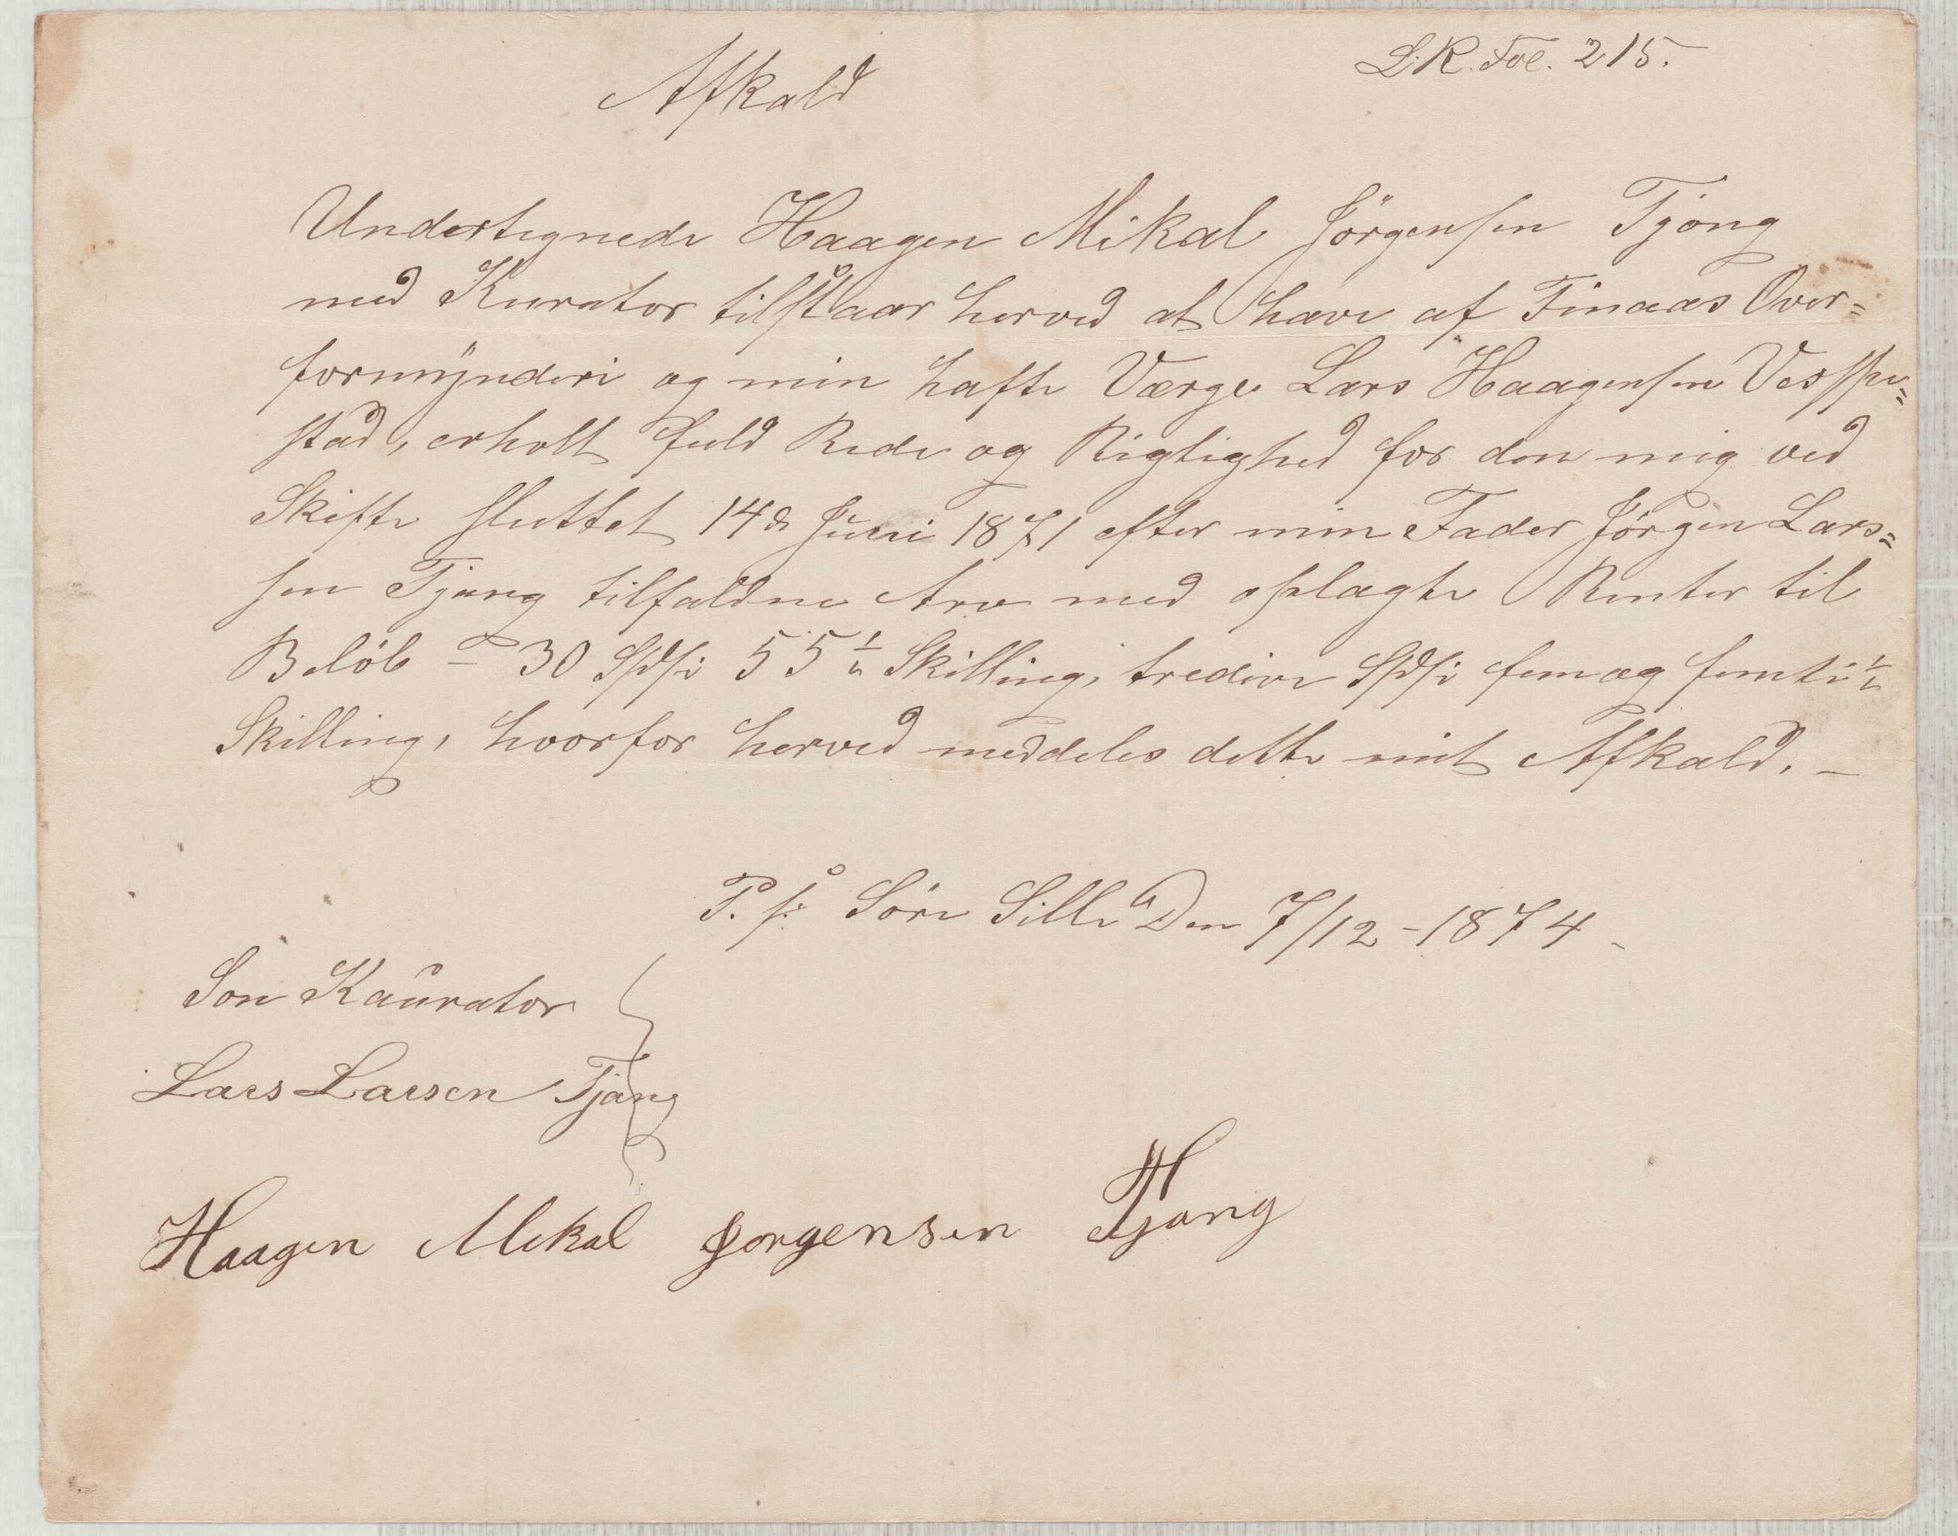 L.R. Fol. 215.
Afkald
Undertegnede Haagen Mikal Jörgensen Tjong
med Kurator tilstaar herved at have af Finaas Over=
formynderi og min hafte Værge Lars Haagensen Vespe=
stad, erholt fuld Rede og Rigtighed for den mig ved
Skifte sluttet 14d Juni 1871 efter min Fader Jörgen Lars=
sen Tjang tilfaldne Arv med oplagte Renter til
Belöb - 30 Spd: 55 ½ Skilling, tredive Spd: fem og femti ½
Skilling, hvorfor herved meddeles dette mit Afkald. -
P. t: Söre Lille Den 7/12 - 1874 -
Son Kaurator
Lars Larsen Tjang
Haagen Mikal Jorgensen Tjang